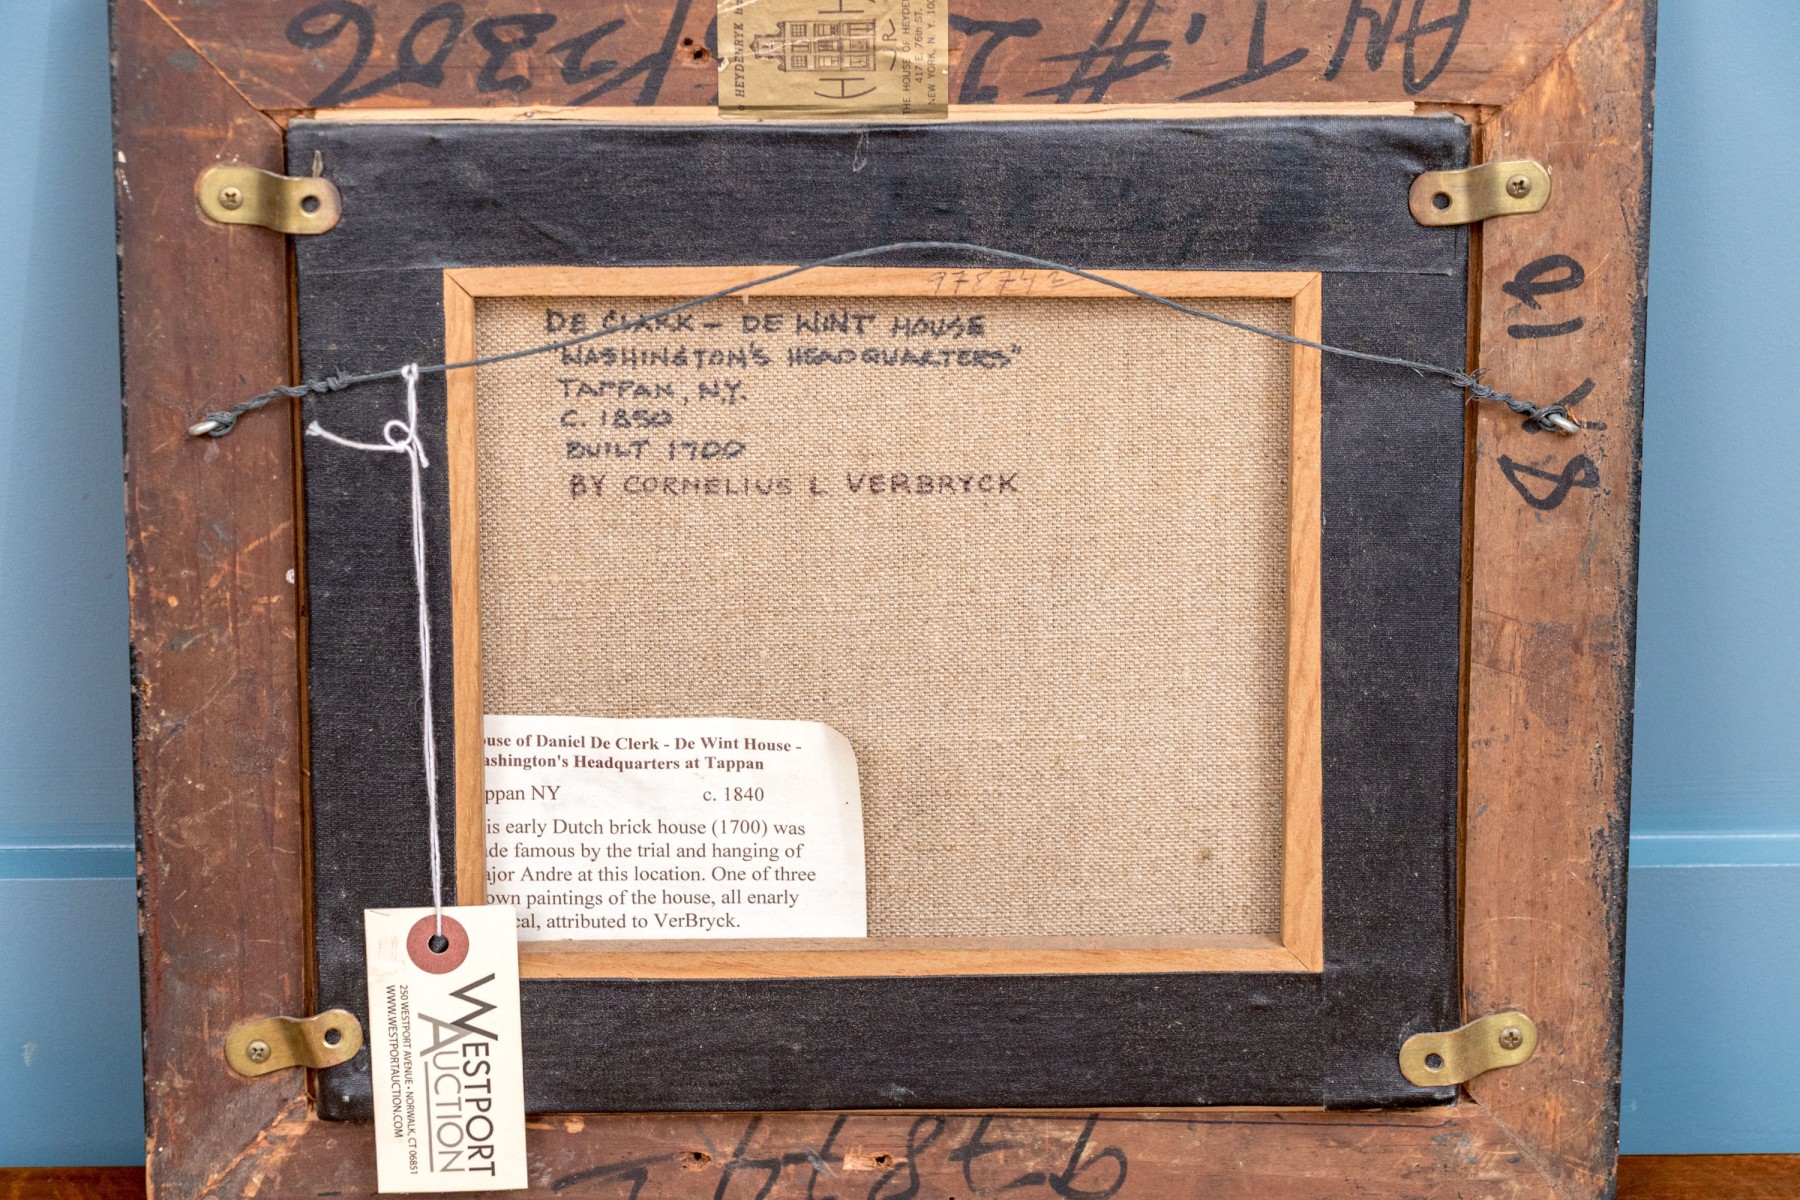 HEYDENRYK
H H
JR
THE HOUSE OF HEYDEN
417 E. 76th ST.
NEW YORK, N. Y. 100
ANT. #2
12306
978742
DE CLARK – DE WINT HOUSE
"WASHINGTON'S HEADQUARTERS"
TAPPAN, N.Y.
C. 1850
BUILT 1700
BY CORNELIUS L VERBRYCK
8 X 10
ouse of Daniel De Clerk - De Wint House -
ashington's Headquarters at Tappan
ppan NY c. 1840
is early Dutch brick house (1700) was
de famous by the trial and hanging of
ajor Andre at this location. One of three
own paintings of the house, all enarly
cal, attributed to VerBryck.
WESTPORT
AUCTION
250 WESTPORT AVENUE • NORWALK, CT 06851
WWW.WESTPORTAUCTION.COM
97874